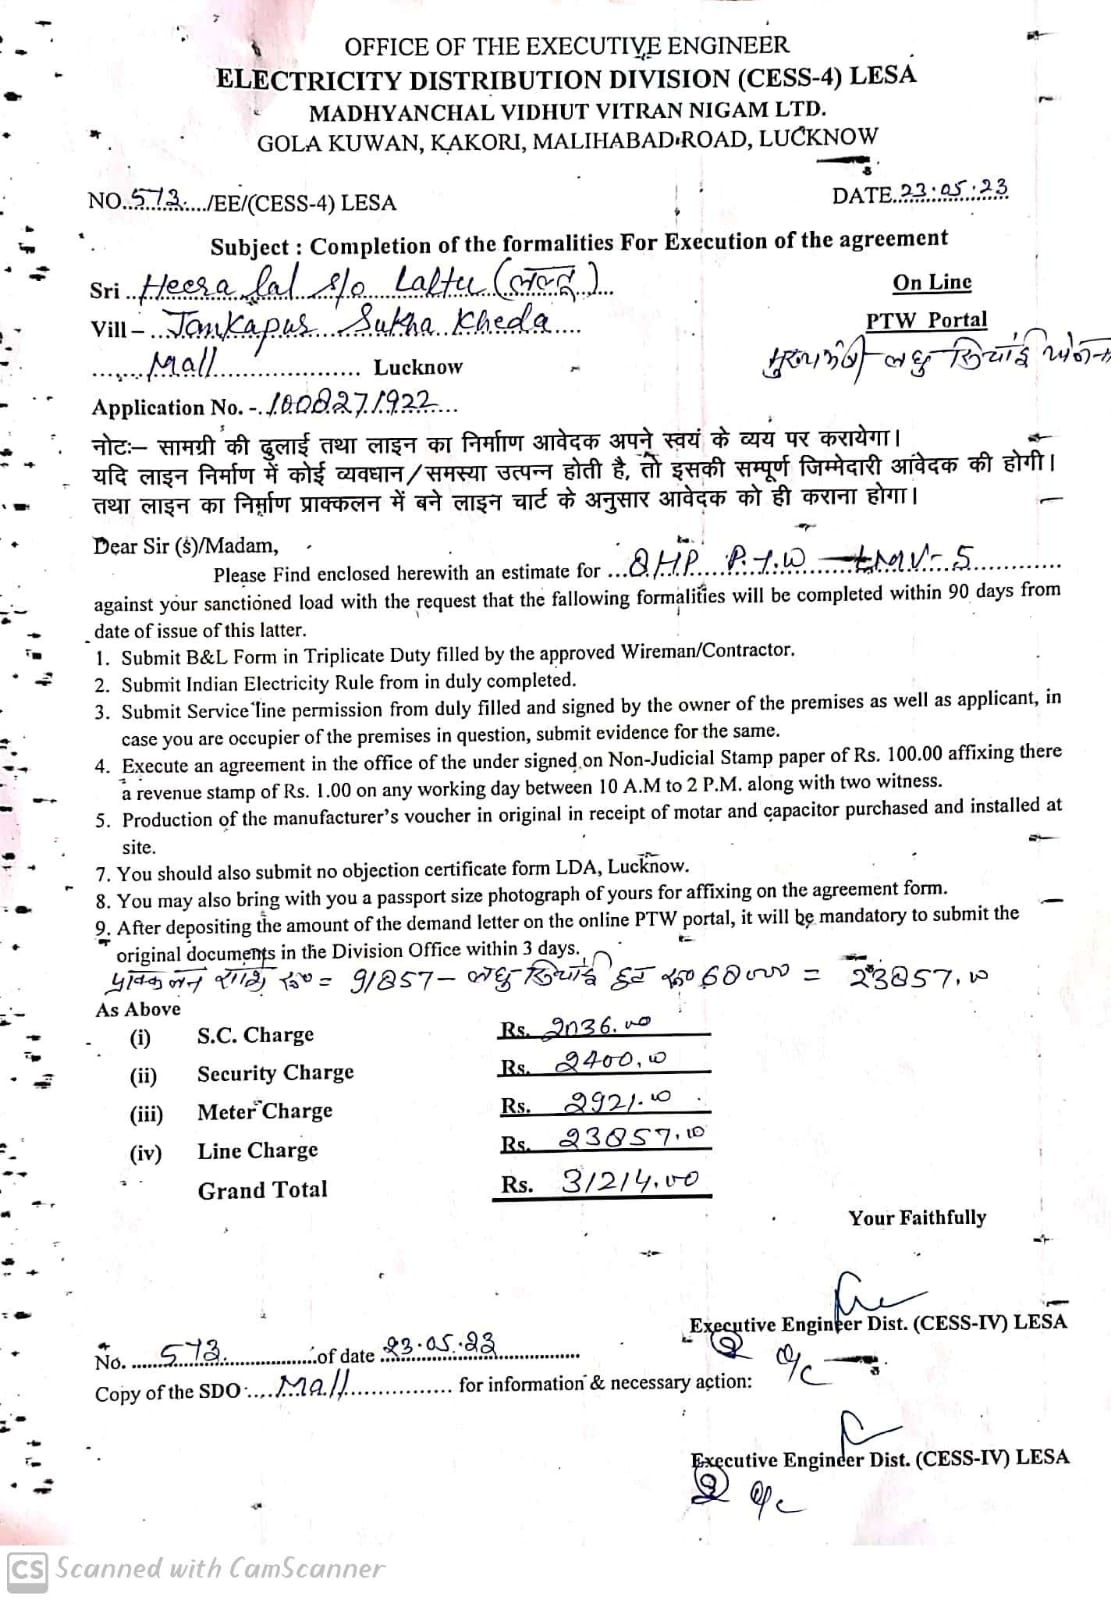 OFFICE OF THE EXECUTIVE ENGINEER
ELECTRICITY DISTRIBUTION DIVISION (CESS-4) LESA
MADHYANCHAL VIDHUT VITRAN NIGAM LTD.
GOLA KUWAN, KAKORI, MALIHABAD ROAD, LUCKNOW
NO..573..../EE/(CESS-4) LESA
DATE.23.05.23
Subject : Completion of the formalities For Execution of the agreement
Sri ..Heera lal s/o Laltu (लल्तू)...
On Line
Vill – ..Jankapur Sukha Kheda....
PTW Portal
......Mall.................... Lucknow
मुख्यमंत्री लघु सिंचाई
Application No. -.1008271922...
नोटः– सामग्री की ढुलाई तथा लाइन का निर्माण आवेदक अपने स्वयं के व्यय पर करायेगा।
यदि लाइन निर्माण में कोई व्यवधान/समस्या उत्पन्न होती है, तो इसकी सम्पूर्ण जिम्मेदारी आवेदक की होगी।
तथा लाइन का निर्माण प्राक्कलन में बने लाइन चार्ट के अनुसार आवेदक को ही कराना होगा।
Dear Sir (s)/Madam,
Please Find enclosed herewith an estimate for ...8HP P.T.W – LMV-5.............
against your sanctioned load with the request that the fallowing formalities will be completed within 90 days from
date of issue of this latter.
1. Submit B&L Form in Triplicate Duty filled by the approved Wireman/Contractor.
2. Submit Indian Electricity Rule from in duly completed.
3. Submit Service line permission from duly filled and signed by the owner of the premises as well as applicant, in
case you are occupier of the premises in question, submit evidence for the same.
4. Execute an agreement in the office of the under signed on Non-Judicial Stamp paper of Rs. 100.00 affixing there
a revenue stamp of Rs. 1.00 on any working day between 10 A.M to 2 P.M. along with two witness.
5. Production of the manufacturer's voucher in original in receipt of motar and capacitor purchased and installed at
site.
7. You should also submit no objection certificate form LDA, Lucknow.
8. You may also bring with you a passport size photograph of yours for affixing on the agreement form.
9. After depositing the amount of the demand letter on the online PTW portal, it will be mandatory to submit the
original documents in the Division Office within 3 days.
प्राक्कलन राशि रू० = 91857 – लघु सिंचाई छूट रू० 68000 = 23857.00
As Above
(i) S.C. Charge Rs. 2036.00
(ii) Security Charge Rs. 2400.00
(iii) Meter Charge Rs. 2921.00
(iv) Line Charge Rs. 23857.00
Grand Total Rs. 31214.00
Your Faithfully
Executive Engineer Dist. (CESS-IV) LESA
No. .....573...................of date .23.05.23................
Copy of the SDO :....Mall................ for information & necessary action:
Executive Engineer Dist. (CESS-IV) LESA
CS Scanned with CamScanner